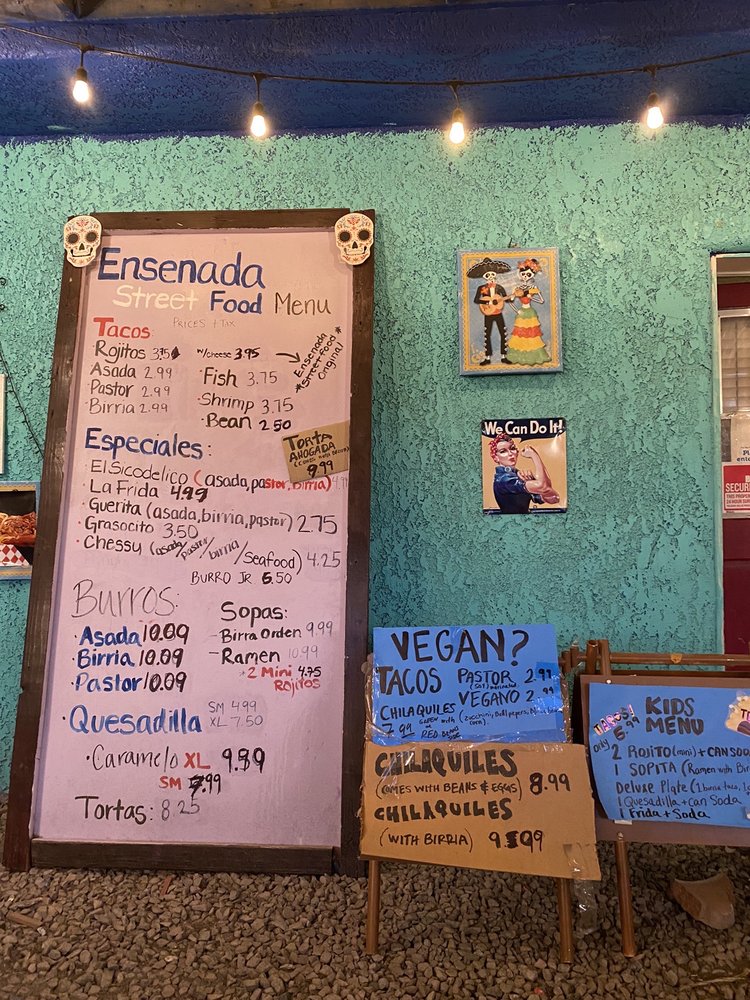 Ensenada
Street Food Menu
PRICES + TAX
Tacos
Rojitos
Asada 2.99
Pastor 2.99
Birria 2.99
w/cheese 3.95
Fish 3.75
Shrimp 3.75
Bean 2.50
*Ensenada
street food*
Original
TORTA
AHOGADA
9.99
Especiales:
El Sicodelico (asada, pastor, birria)
La Frida 4.99
Guerita (asada, birria, pastor) 2.75
Grasocito 3.50
Chessy (asada/pastor/birria/Seafood) 4.25
BURRO JR 6.50
Burros:
Asada 10.09
Birria 10.09
Pastor 10.09
Sopas:
Birra Orden 9.99
Ramen 10.99
2 Mini 4.75
Rojitos
Quesadilla
SM 4.99
XL 7.50
Caramelo XL 9.99
SM 7.99
Tortas: 8.25
We Can Do It!
VEGAN?
TACOS PASTOR 2.99
(SOY) marinated
VEGANO 2.99
CHILAQUILES
7.99 GREEN with
or RED BEANS
(zucchini, Bell pepers,
CHILAQUILES
(COMES WITH BEANS & EGGS) 8.99
CHILAQUILES
(WITH BIRRIA)
TACOS!
only 5.99
KIDS
MENU
2 ROJITO (mini) + CAN SODA
1 SOPITA (Ramen with Bir
DELUXE Plate (1 birria taco,
1 Quesadilla + can Soda
Frida + Soda
SECUR